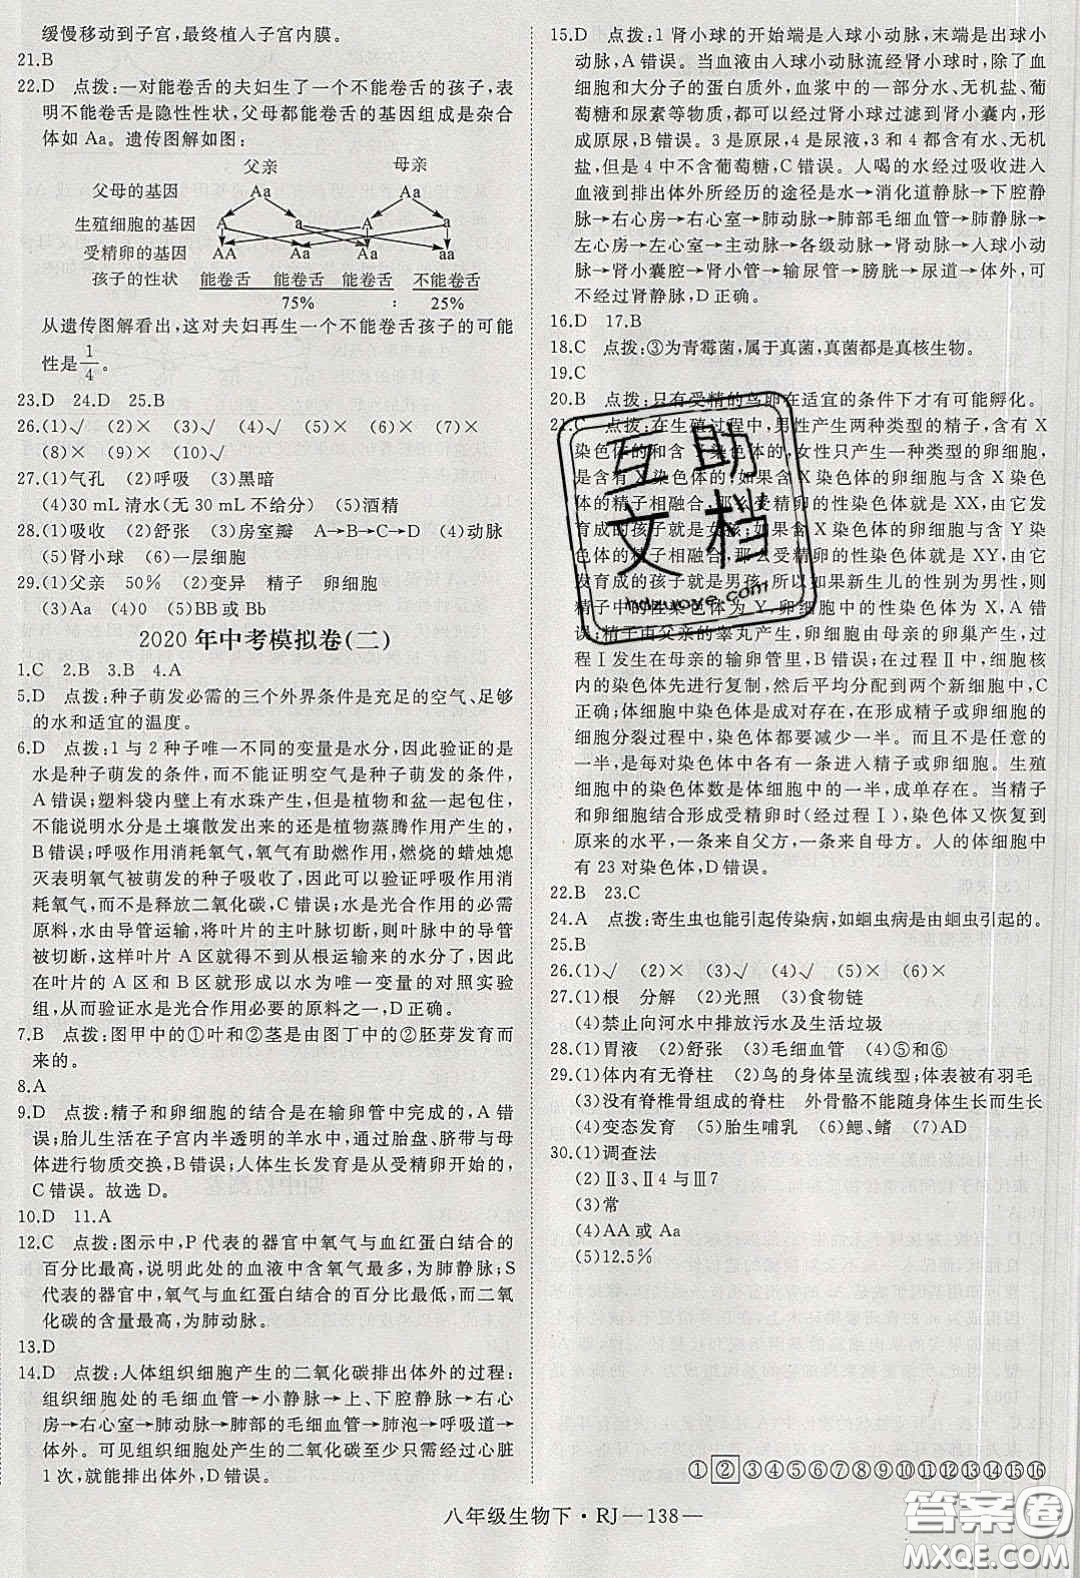 缓慢移动到子宫,最终植入子宫内膜。
21.B
22.D 点拨:一对能卷舌的夫妇生了一个不能卷舌的孩子,表
明不能卷舌是隐性性状,父母都能卷舌的基因组成是杂合
体如 Aa。遗传图解如图:
父亲 母亲
父母的基因 Aa Aa
生殖细胞的基因 A a A a
受精卵的基因 AA Aa Aa aa
孩子的性状 能卷舌 能卷舌 能卷舌 不能卷舌
75% : 25%
从遗传图解看出,这对夫妇再生一个不能卷舌孩子的可能
性是1/4。
23.D 24.D 25.B
26.(1)√ (2)× (3)√ (4)√ (5)× (6)× (7)×
(8)× (9)× (10)√
27.(1)气孔 (2)呼吸 (3)黑暗
(4)30 mL 清水(无 30 mL 不给分) (5)酒精
28.(1)吸收 (2)舒张 (3)房室瓣 A→B→C→D (4)动脉
(5)肾小球 (6)一层细胞
29.(1)父亲 50% (2)变异 精子 卵细胞
(3)Aa (4)0 (5)BB 或 Bb
2020 年中考模拟卷(二)
1.C 2.B 3.B 4.A
5.D 点拨:种子萌发必需的三个外界条件是充足的空气、足够
的水和适宜的温度。
6.D 点拨:1 与 2 种子唯一不同的变量是水分,因此验证的是
水是种子萌发的条件,而不能证明空气是种子萌发的条件,
A 错误;塑料袋内壁上有水珠产生,但是植物和盆一起包住,
不能说明水分是土壤散发出来的还是植物蒸腾作用产生的,
B 错误;呼吸作用消耗氧气,氧气有助燃作用,燃烧的蜡烛熄
灭表明氧气被萌发的种子吸收了,因此可以验证呼吸作用消
耗氧气,而不是释放二氧化碳,C 错误;水是光合作用必需的
原料,水由导管运输,将叶片的主叶脉切断,则叶脉中的导管
被切断,这样叶片的 A 区就不能得到从根运输来的水分,因
此在叶片的 A 区和 B 区就形成以水为唯一变量的对照实验
组,从而验证水是光合作用必要的原料之一,D 正确。
7.B 点拨:图甲中的①叶和②茎是由图丁中的②胚芽发育而
来的。
8.A
9.D 点拨:精子和卵细胞的结合是在输卵管中完成的,A 错
误;胎儿生活在子宫内半透明的羊水中,通过胎盘、脐带与母
体进行物质交换,B 错误;人体生长发育是从受精卵开始的,
C 错误。故选 D。
10.D 11.A
12.C 点拨:图示中,P 代表的器官中氧气与血红蛋白结合的
百分比最高,说明此处的血液中含氧气最多,为肺静脉;S
代表的器官中,氧气与血红蛋白结合的百分比最低,而二氧
化碳的含量最高,为肺动脉。
13.D
14.D 点拨:人体组织细胞产生的二氧化碳排出体外的过程:
组织细胞处的毛细血管→小静脉→上、下腔静脉→右心
房→右心室→肺动脉→肺部的毛细血管→肺泡→呼吸道→
体外。可见组织细胞处产生的二氧化碳至少只需经过心脏
1 次,就能排出体外,D 错误。
15.D 点拨:1 肾小球的开始端是入球小动脉,末端是出球小
动脉,A 错误。当血液由入球小动脉流经肾小球时,除了血
细胞和大分子的蛋白质外,血浆中的一部分水、无机盐、葡
萄糖和尿素等物质,都可以经过肾小球过滤到肾小囊内,形
成原尿,B 错误。3 是原尿,4 是尿液,3 和 4 中都含有水、无机
盐,但是 4 中不含葡萄糖,C 错误。人喝的水经过吸收进入
血液到排出体外所经历的途径是水→消化道静脉→下腔静
脉→右心房→右心室→肺动脉→肺部毛细血管→肺静脉→
左心房→左心室→主动脉→各级动脉→肾动脉→入球小动
脉→肾小囊腔→肾小管→输尿管→膀胱→尿道→体外,可
不经过肾静脉,D 正确。
16.D 17.B
18.C 点拨:③为青霉菌,属于真菌,真菌都是真核生物。
19.C
20.B 点拨:只有受精的鸟卵在适宜的条件下才有可能孵化。
21.C 点拨:在生殖过程中,男性产生两种类型的精子,含有 X
染色体的和含 Y 染色体的,女性只产生一种类型的卵细胞,
是含有 X 染色体的,如果含 X 染色体的卵细胞与含 X 染色
体的精子相融合,那么受精卵的性染色体就是 XX,由它发
育成的孩子就是女孩;如果含 X 染色体的卵细胞与含 Y
染色体的精子相融合,那么受精卵的性染色体就是 XY,由它
发育成的孩子就是男孩,所以如果新生儿的性别为男性,则
精子中的性染色体为 Y,卵细胞中的性染色体为 X,A 错
误;精子由父亲的睾丸产生,卵细胞由母亲的卵巢产生,所以
过程Ⅰ发生在母亲的输卵管里,B 错误;过程Ⅱ中,细胞核
内的染色体先进行复制,然后平均分配到两个新细胞中,C
正确;体细胞中染色体是成对存在,在形成精子或卵细胞的
细胞分裂过程中,染色体都要减少一半。而且不是任意的
一半,是每对染色体中各有一条进入精子或卵细胞。生殖
细胞中的染色体数是体细胞中的一半,成单存在。当精
子和卵细胞结合形成受精卵时(经过程Ⅰ),染色体又恢复到
原来的水平,一条来自父方,一条来自母方。人的体细胞中
有 23 对染色体,D 错误。
22.B 23.C
24.A 点拨:寄生虫也能引起传染病,如蛔虫病是由蛔虫引起的。
25.B
26.(1)√ (2)× (3)× (4)√ (5)× (6)×
27.(1)根 分解 (2)光照 (3)食物链
(4)禁止向河水中排放污水及生活垃圾
28.(1)胃液 (2)舒张 (3)毛细血管 (4)⑤和⑥
29.(1)体内有无脊柱 (2)鸟的身体呈流线型;体表被有羽毛
(3)没有脊椎骨组成的脊柱 外骨骼不能随身体生长而生长
(4)变态发育 (5)胎生哺乳 (6)鳃、鳍 (7)AD
30.(1)调查法
(2)Ⅱ3、Ⅱ4 与Ⅲ7
(3)常
(4)AA 或 Aa
(5)12.5%
①②③④⑤⑥⑦⑧⑨⑩⑪⑫⑬⑭⑮⑯
八年级生物下·RJ—138—
互助
文档
hdzuoye.com
答案圈
MXQE.COM